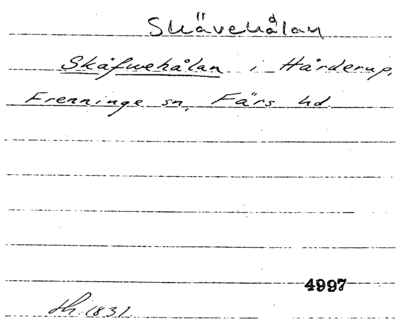 Skävehålan
Skåfwehålan i Hårderup,
Frenninge sn, Färs hd.
4997
th. 1831